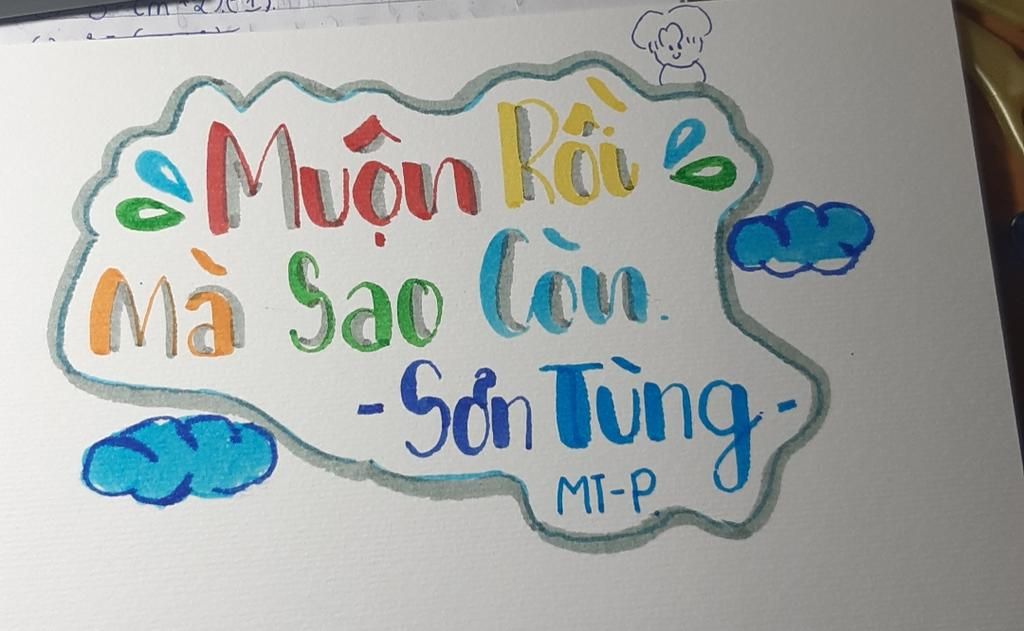 Muộn Rồi
Mà Sao Còn.
- Sơn Tùng -
MT-P.